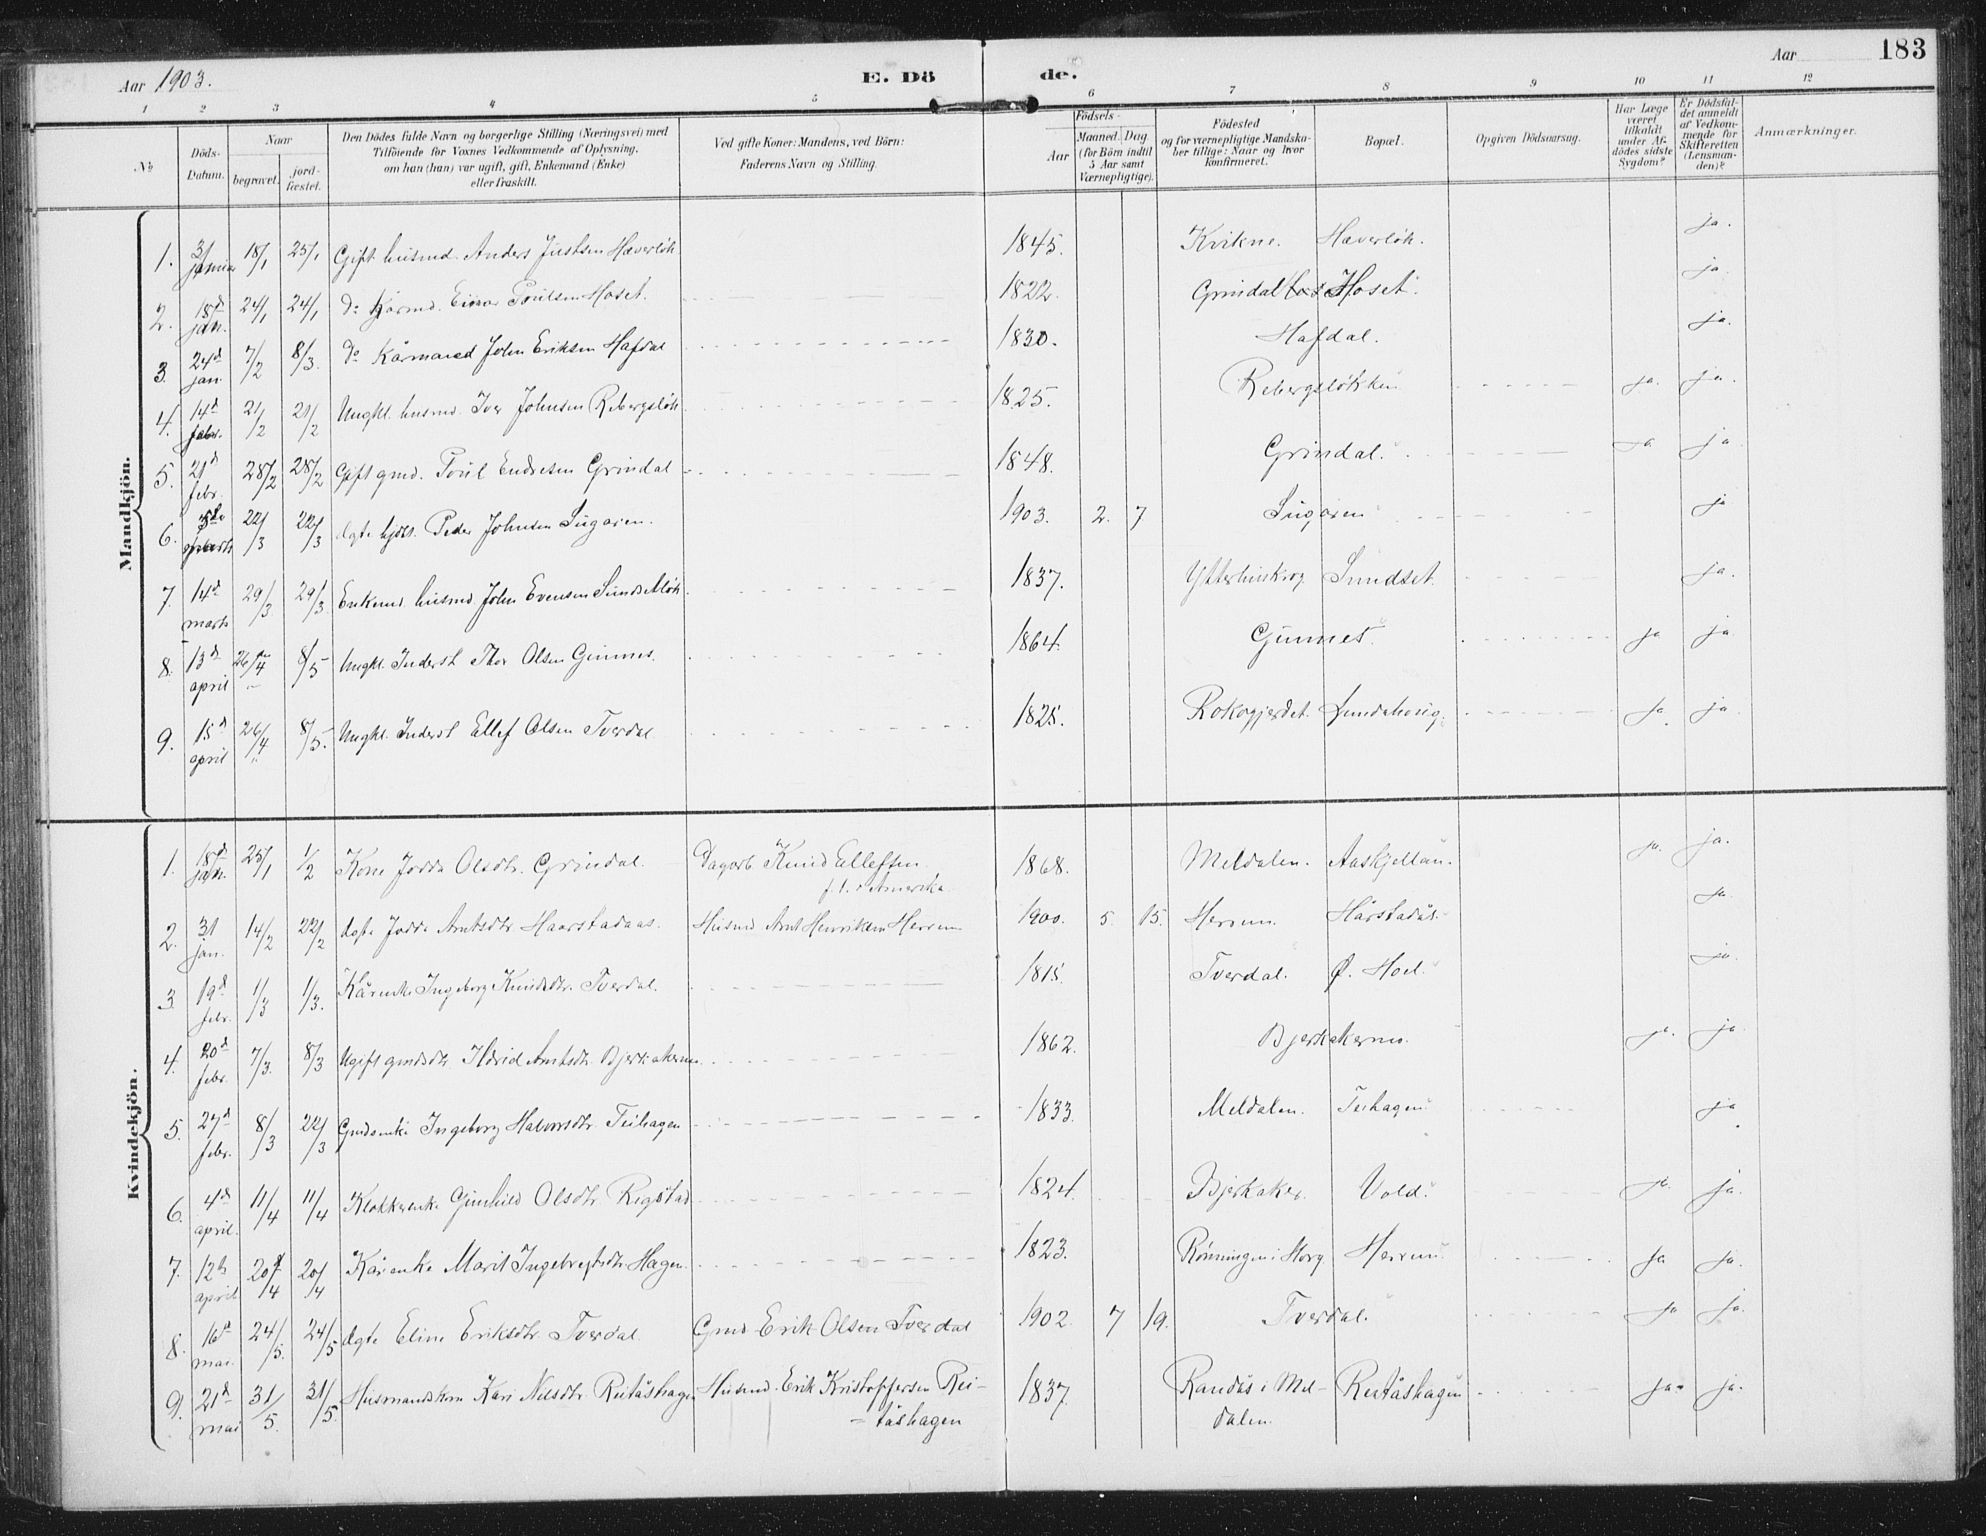 Aar 1903.
E. Dö
de.
Aar
183
1 2 3 4 5 6 7 8 9 10 11 12
No
Döds-
Datum.
Naar
begravet.
jord-
fæstet.
Den Dödes fulde Navn og borgerlige Stilling (Næringsvei) med
Tilföiende for Voxnes Vedkommende af Oplysning,
om han (hun) var ugift, gift, Enkemand (Enke)
eller fraskilt.
Ved gifte Koner: Mandens, ved Börn:
Faderens Navn og Stilling.
Födsels-
Aar
Maaned.
Dag
(for Börn indtil
5 Aar samt
Værnepligtige).
Födested
og for værnepligtige Mandska-
ber tillige: Naar og hvor
konfirmeret.
Bopæl.
Opgiven Dödsaarsag.
Har Læge
været
tilkaldt
under Af-
dödes sidste
Sygdom?
Er Dödsfal-
det anmeldt
af Vedkom-
mende for
Skifteretten
(Lensman-
den)?
Anmærkninger.
Mandkjön.
1. 3/ januar 18/1 25/1 Gift husmd. Anders Justsen Hæverløk 1845. Kvikne. Hæverløk. ja.
2. 18d jan. 24/1 24/1 do kårmd. Einar Poulsen Hoset. 1822. Grindal Hoset. ja.
3. 24d jan. 7/2 8/3. do Kårmand John Eriksen Hafdal 1830. Hafdal. ja.
4. 14d febr. 21/2 21/2 Ungkl. husmd. Iver Johnsen Rebergsløk 1825. Rebergsløkken ja. ja.
5. 21d febr. 28/2 28/2 Gift gmd. Poul Endresen Grindal 1848. Grindal. ja ja
6. marts 22/3 22/3 ægte hjdbt. Peder Johnsen Sugaren. 1903. 2. 7 Sugaren ja
7. 14d marts 29/3 29/3 Enkemd. husmd. John Evensen Sundsetløk. 1837. Sundset. ja.
8. 13d april 26/4 8/5 Ungkl. Inderst Thor Olsen Gunnes. 1864. Gunnes. ja ja
9. 15d april 26/4 8/5. Ungkl. Inderst Ellef Olsen Tverdal 1825. Rokogjerdet. ja. ja.
Kvindekjön.
1. 18d jan. 25/1 1/2 Kone Jodda Olsdtr. Grindal. Dagarb. Knud Ellefsen
f. t. i Amerika. 1868. Meldalen. Aaskjellan. ja. ja.
2. 31 jan. 14/2 22/2 ægte Jodda Arntsdtr. Haarstadaas Husmd Arnt Henriksen Herrem 1900. 5 15. Herrem. Hårstadås. ja.
3 19d febr. 1/3 1/3. Kårenke Ingeborg Knudsdtr. Tverdal. 1815. Tverdal. Ø. Hoel. ja.
4. 20d febr. 7/3. 8/3 Ugift gmdsdtr. Ildrid Arntsdtr. Bjerkakernes. 1862. Bjerkakernes. ja. ja.
5. 27d febr. 8/3 22/3 Gmdsenke Ingeborg Halvorsdtr. Teihagen 1833. Meldalen. Teihagen. ja.
6. 4d april. 11/4 11/4 Klokkerenke Gunhild Olsdtr. Rigstad 1824. Bjerkaker. Vold. ja. ja.
7. 12te april 20/4 20/4 Kårenke Marit Ingebrigtsdtr. Hagen. 1823. Rønningen i Horg Herrem. ja ja.
8. 16d mai. 24/5. 24/5 ægte Eline Eriksdtr. Tverdal Gmd Erik Olsen Tverdal 1902. 7 19. Tverdal. ja ja.
9. 21d mai 31/5. 31/5. Husmandskone Kari Nilsdtr. Reitåshagen Husmd. Erik Kristoffersen Rei-
tåshagen 1837. Randås i Mel-
dalen. Reitåshagen ja. ja.